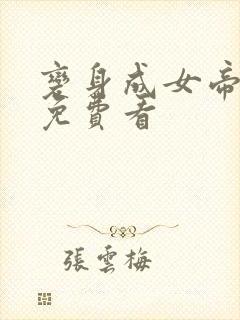 變身成女帝
免費看
張雲梅